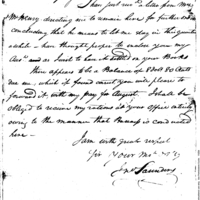 I have just rec'd letter from Maj
McHenry directing me to remain here for further orders
concluding that he means to let me stay in this quarter
awhile - have thought proper to enclose you my
Acc't and as Just to have it settled on your Books
There appears to be a Balance of
me - which if found correct you will please to
forward it with my pay for August - I shall be
obliged to receive my rations at your office entirely
owing to the manner that business is conducted
here -
I am with great respect
Sir Your
Jn° Saunders